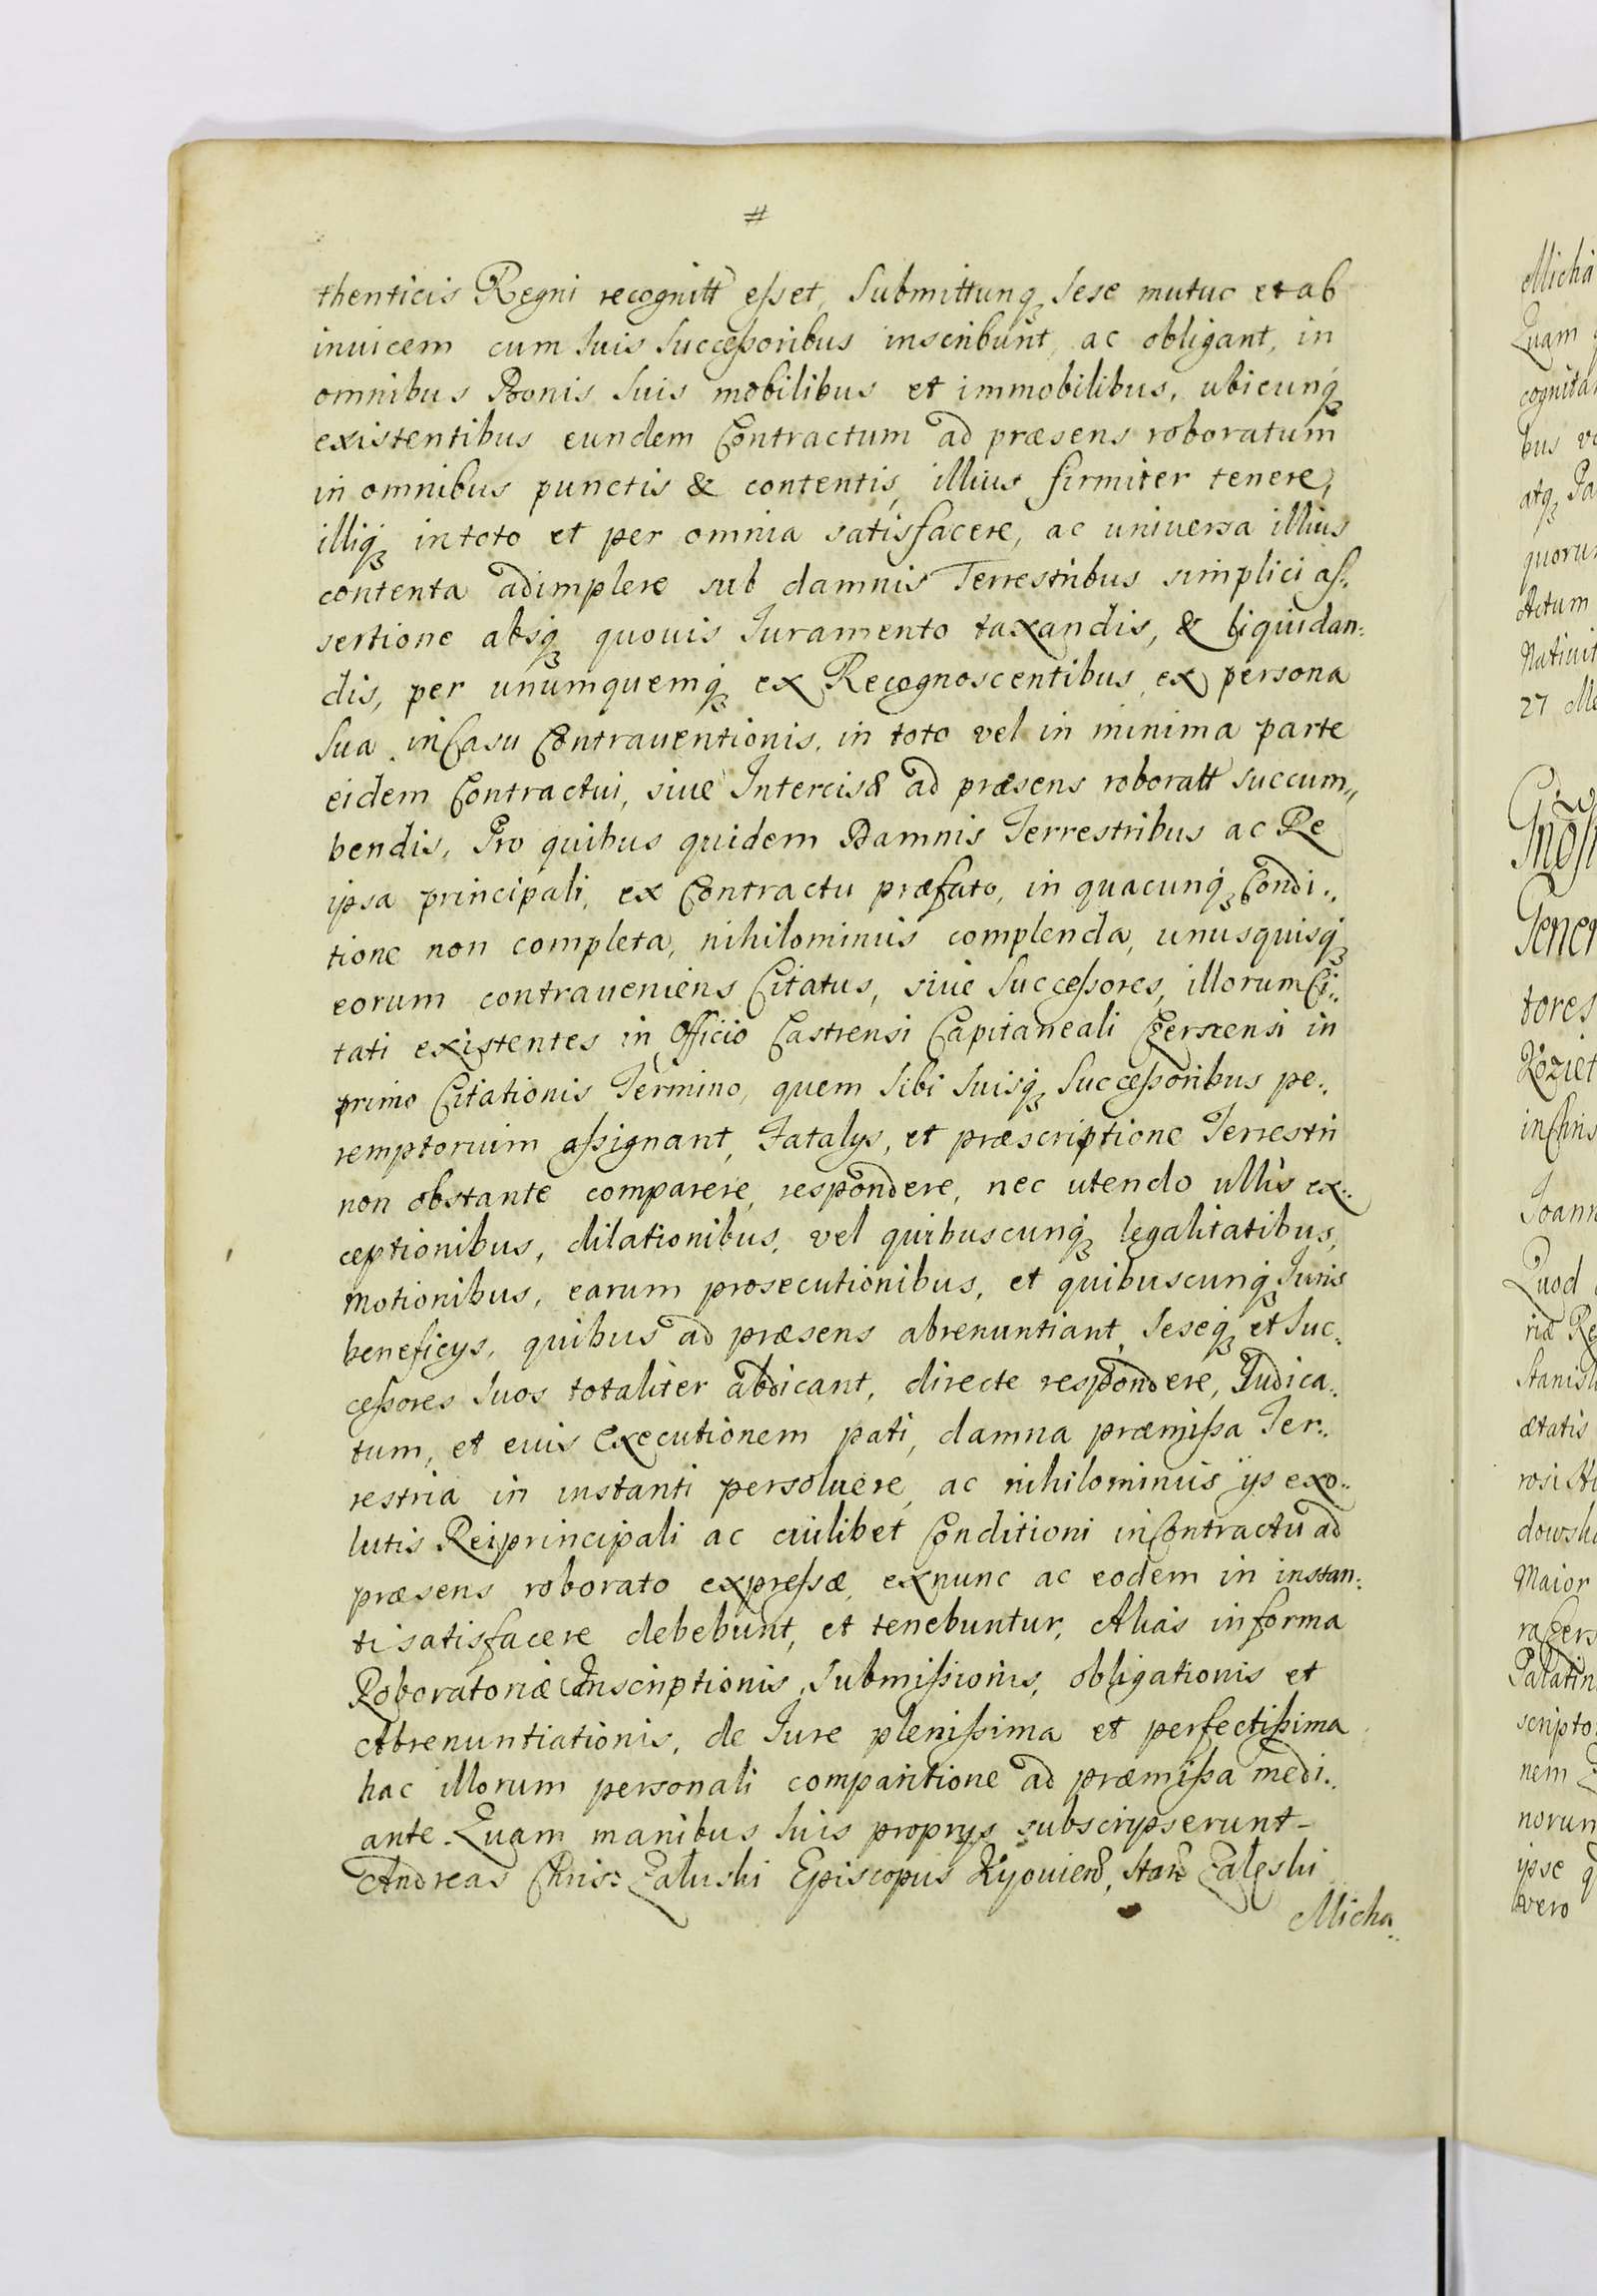 #
thenticis Regni recognitt esset, Submittunq₃ Sese mutuo et ab
inuicem cum Suis Successoribus inscribunt, ac obligant, in
omnibus Bonis Suis mobilibus et immobilibus, ubicunq₃
existentibus eundem Contractum ad præsens roboratum
in omnibus punctis & contentis, illius firmiter tenere,
illiq₃ in toto et per omnia satisfacere, ac uniuersa illius
contenta adimplere sub damnis Terrestribus simplici as:
sertione absq₃ quouis Iuramento taxandis, & liquidan:
dis, per unumquemq₃ ex Recognoscentibus, ex persona
Sua in Casu Contrauentionis, in toto vel in minima parte
eidem Contractui, siue Intercisæ ad præsens roboratt succum„
bendis, Pro quibus quidem Damnis Terrestribus ac Re
ipsa principali, ex Contractu præfato, in quacunq₃ Condi:
tione non completa, nihilominus complenda, unusquisq₃
eorum contraueniens Citatus, siue Successores, illorum Ci:
tati existentes in Officio Castrensi Capitaneali Czerscensi in
primo Citationis Termino, quem Sibi Suisq₃ Successoribus pe:
remptorium assignant, Fatalys, et præscriptione Terrestri
non obstante comparere, respondere, nec utendo ullis ex:
ceptionibus, dilationibus, vel quibuscunq₃ legalitatibus,
motionibus, earum prosecutionibus, et quibuscunq₃ Iuris
beneficys, quibus ad præsens abrenuntiant, Seseq₃ et Suc:
cessores Suos totaliter abdicant, directe respondere, Iudica:
tum, et euis Executionem pati, damna præmissa Ter:
restria in instanti persoluere, ac nihilominus ijs exo:
lutis Rei principali ac cuilibet Conditioni in Contractu ad
præsens roborato expressæ, ex nunc ac eodem in instan:
ti satisfacere debebunt, et tenebuntur, Alias in forma
Roboratoriæ Inscriptionis, Submissionis, obligationis et
Abrenuntiationis, de Iure plenissima et perfectissima
hac illorum personali comparitione ad præmissa medi:
ante. Quam manibus Suis proprys subscrypserunt –
Andreas Chris: Załuski Episcopus Kyouien, Stan Załęski
Micha:
Micha
Quam
cognita
bus
atq₃ Pa
quorum
Actum
Natiuit
27
Gnosi
Gener
tores
Koziet
in Chris
Joann
Quod
riæ Re
Stanisla
ætatis
rosi
dowsk
Maior
ra Czers
Palatin
scripto
nem
norum
ipse q
vero